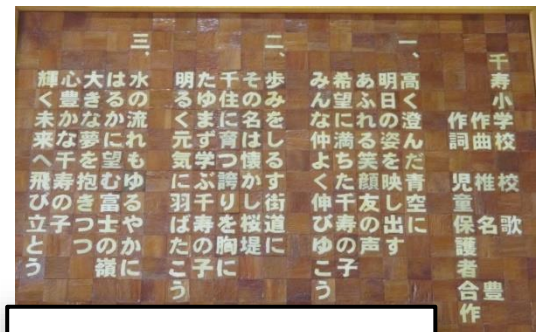 千寿小学校 校歌
作曲 椎名 豊
作詞 児童保護者合作
一、高く澄んだ青空に
明日の姿を映し出す
あふれる笑顔友の声
希望に満ちた千寿の子
みんな仲よく伸びゆこう
二、歩みをしるす街道に
その名は懐かし桜堤
千住に育つ誇りを胸に
たゆまず学ぶ千寿の子
明るく元気に羽ばたこう
三、水の流れもゆるやかに
はるかに望む富士の嶺
大きな夢を抱きつつ
心豊かな千寿の子
輝く未来へ飛び立とう